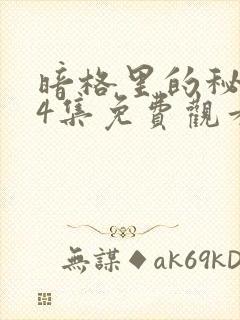 暗格里的秘
4集免費觀
無謀◆ak69kD